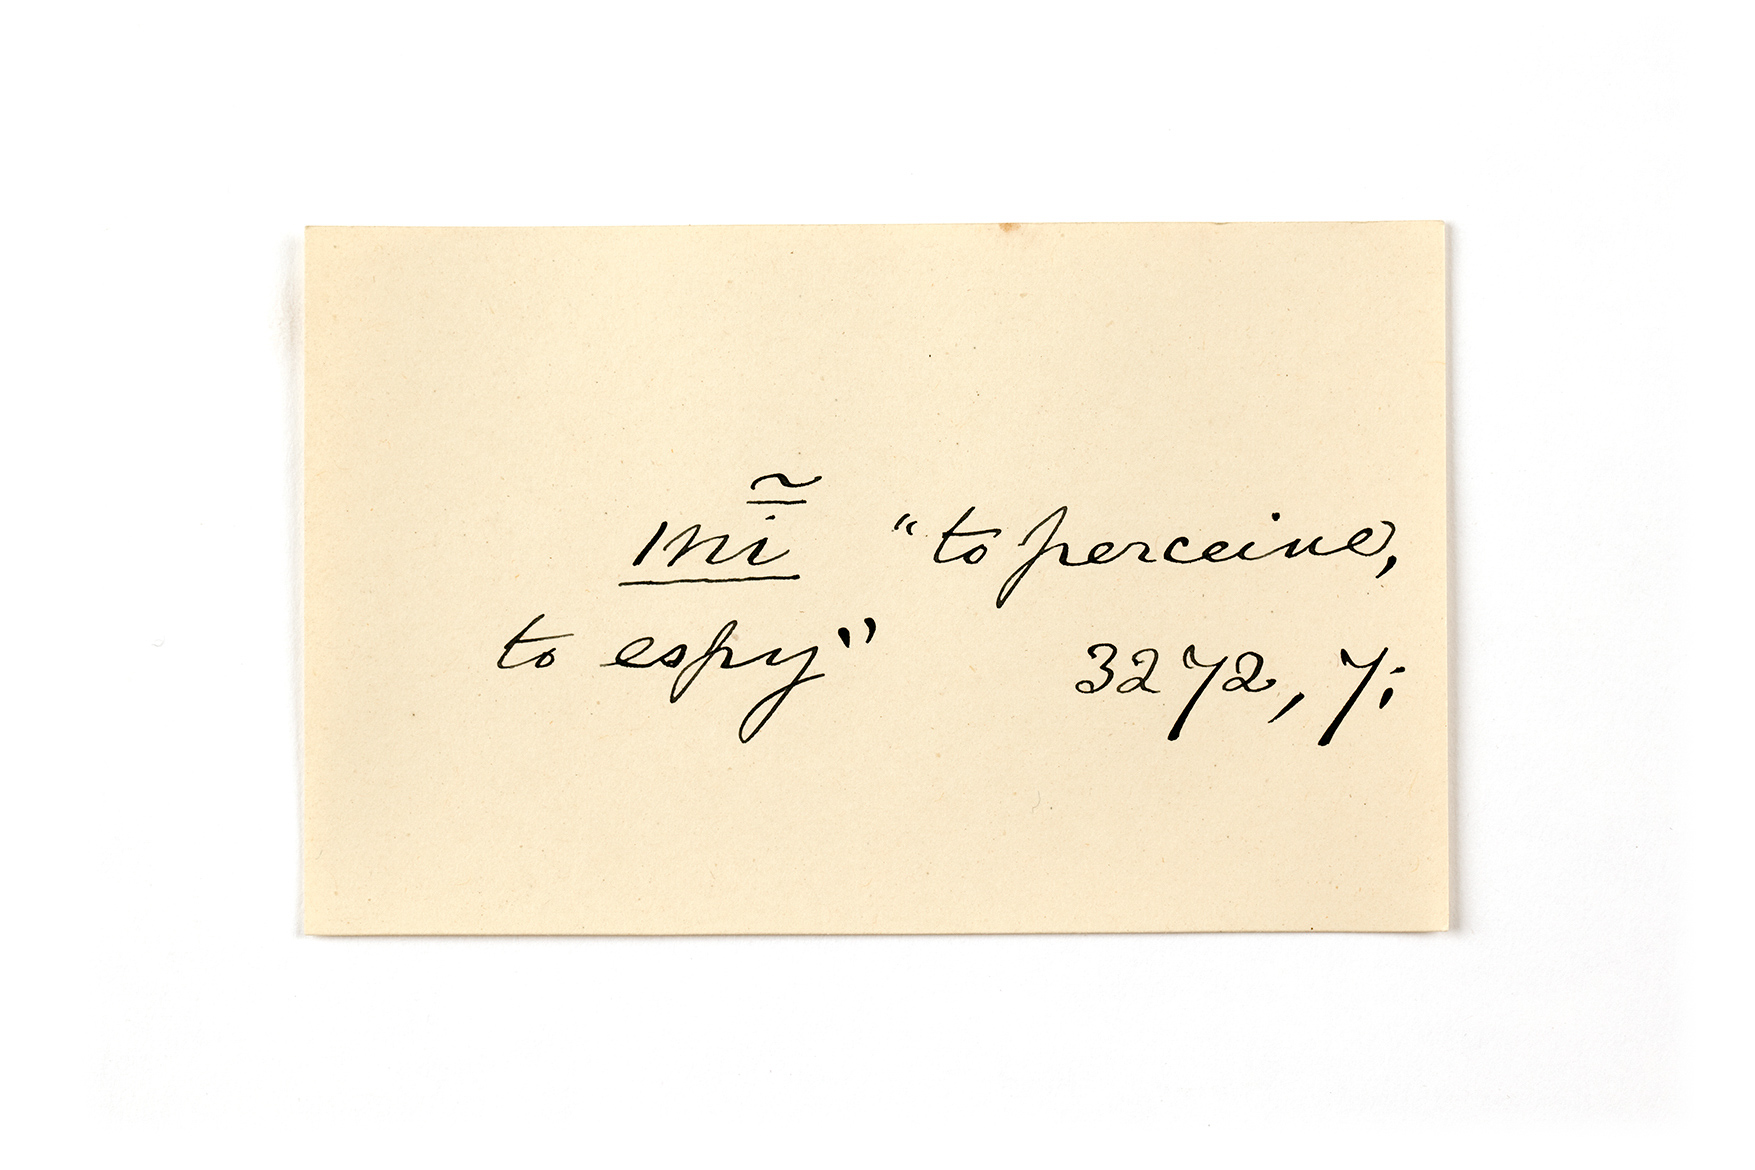 mī̃ “to perceive,
to espy” 3272, 7;